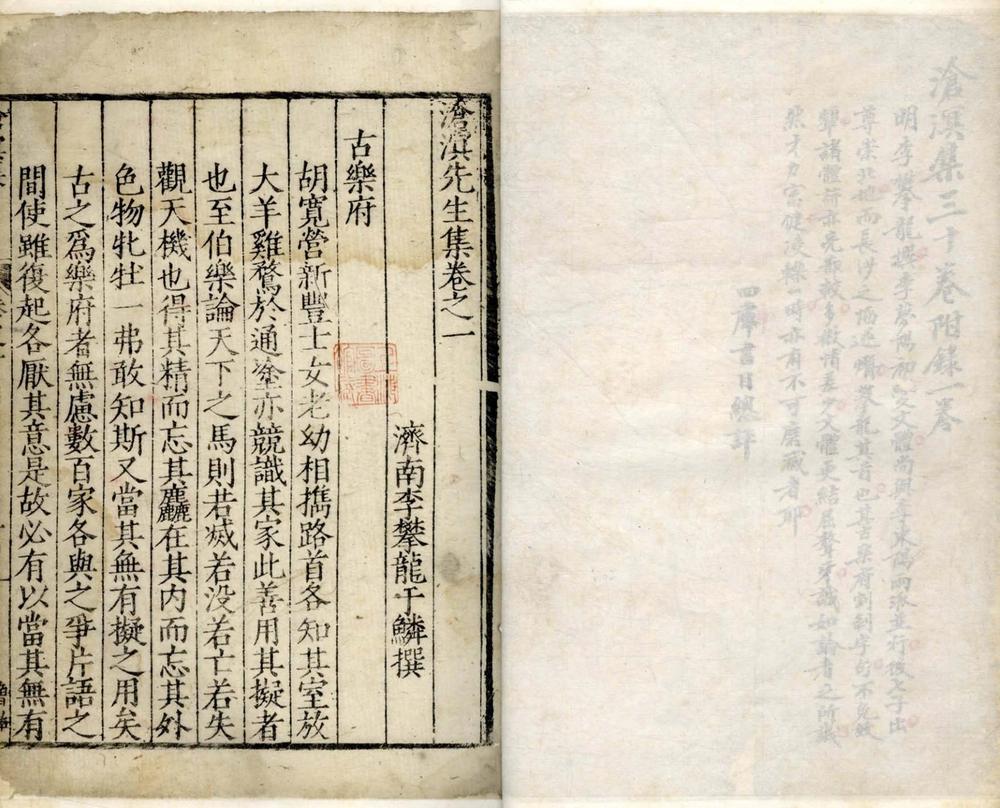 滄溟集三十卷附錄一卷
明李攀龍撰李夢陽初文體尚與李東陽兩派並行後七子出
尊崇北地而長沙之派遂攀龍其首也其古樂府割剝字句不免
諸體所亦多微情差少文體更結屈聱牙誠如論者之所
然才力富健凌轢一時亦有不可磨滅者
四庫書目總評
滄溟先生集卷之一
濟南李攀龍于鱗撰
古樂府
胡寬營新豐士女老幼相擕路首各知其室放
犬羊雞鶩於通塗亦競識其家此善用其擬者
也至伯樂論天下之馬則若滅若没若亡若失
觀天機也得其精而忘其麤在其内而忘其外
色物牝牡一弗敢知斯又當其無有擬之用矣
古之爲樂府者無慮數百家各與之爭片語之
間使雖復起各厭其意是故必有以當其無有